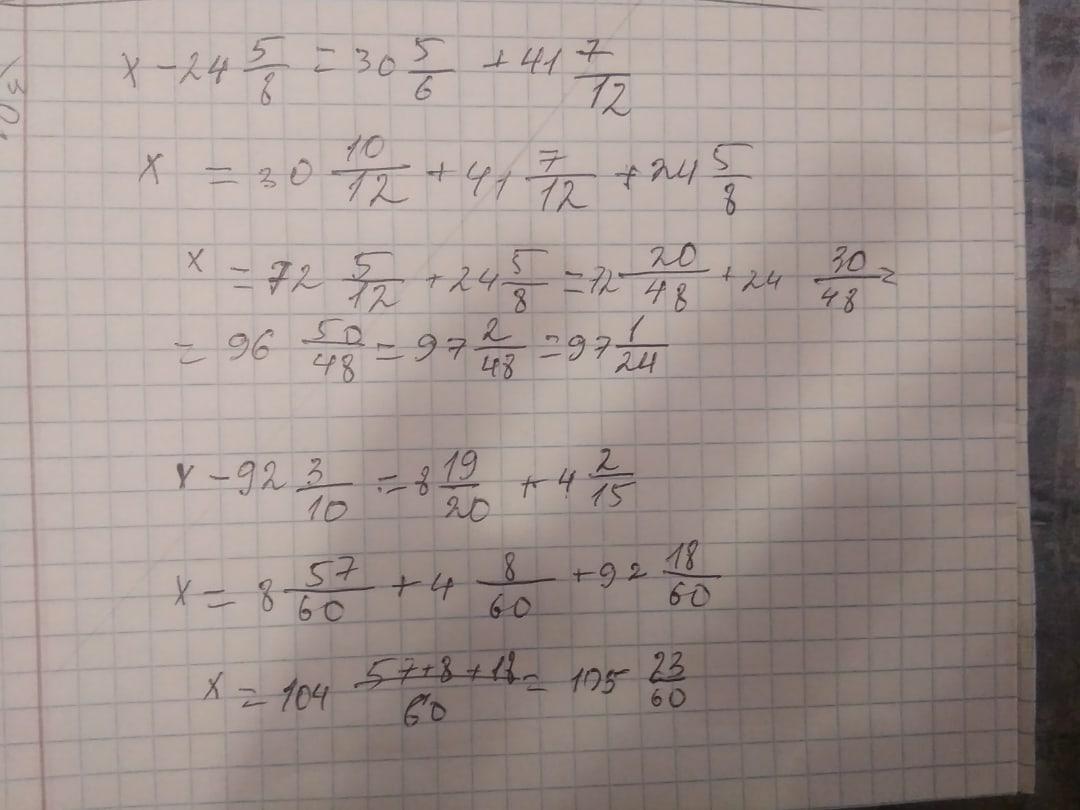 x - 24 5/8 = 30 5/6 + 41 7/12
x = 30 10/12 + 41 7/12 + 24 5/8
x = 72 5/12 + 24 5/8 = 72 20/48 + 24 30/48 =
= 96 50/48 = 97 2/48 = 97 1/24
x - 92 3/10 = 8 19/20 + 4 2/15
x = 8 57/60 + 4 8/60 + 92 18/60
x = 104 57+8+18/60 = 105 23/60